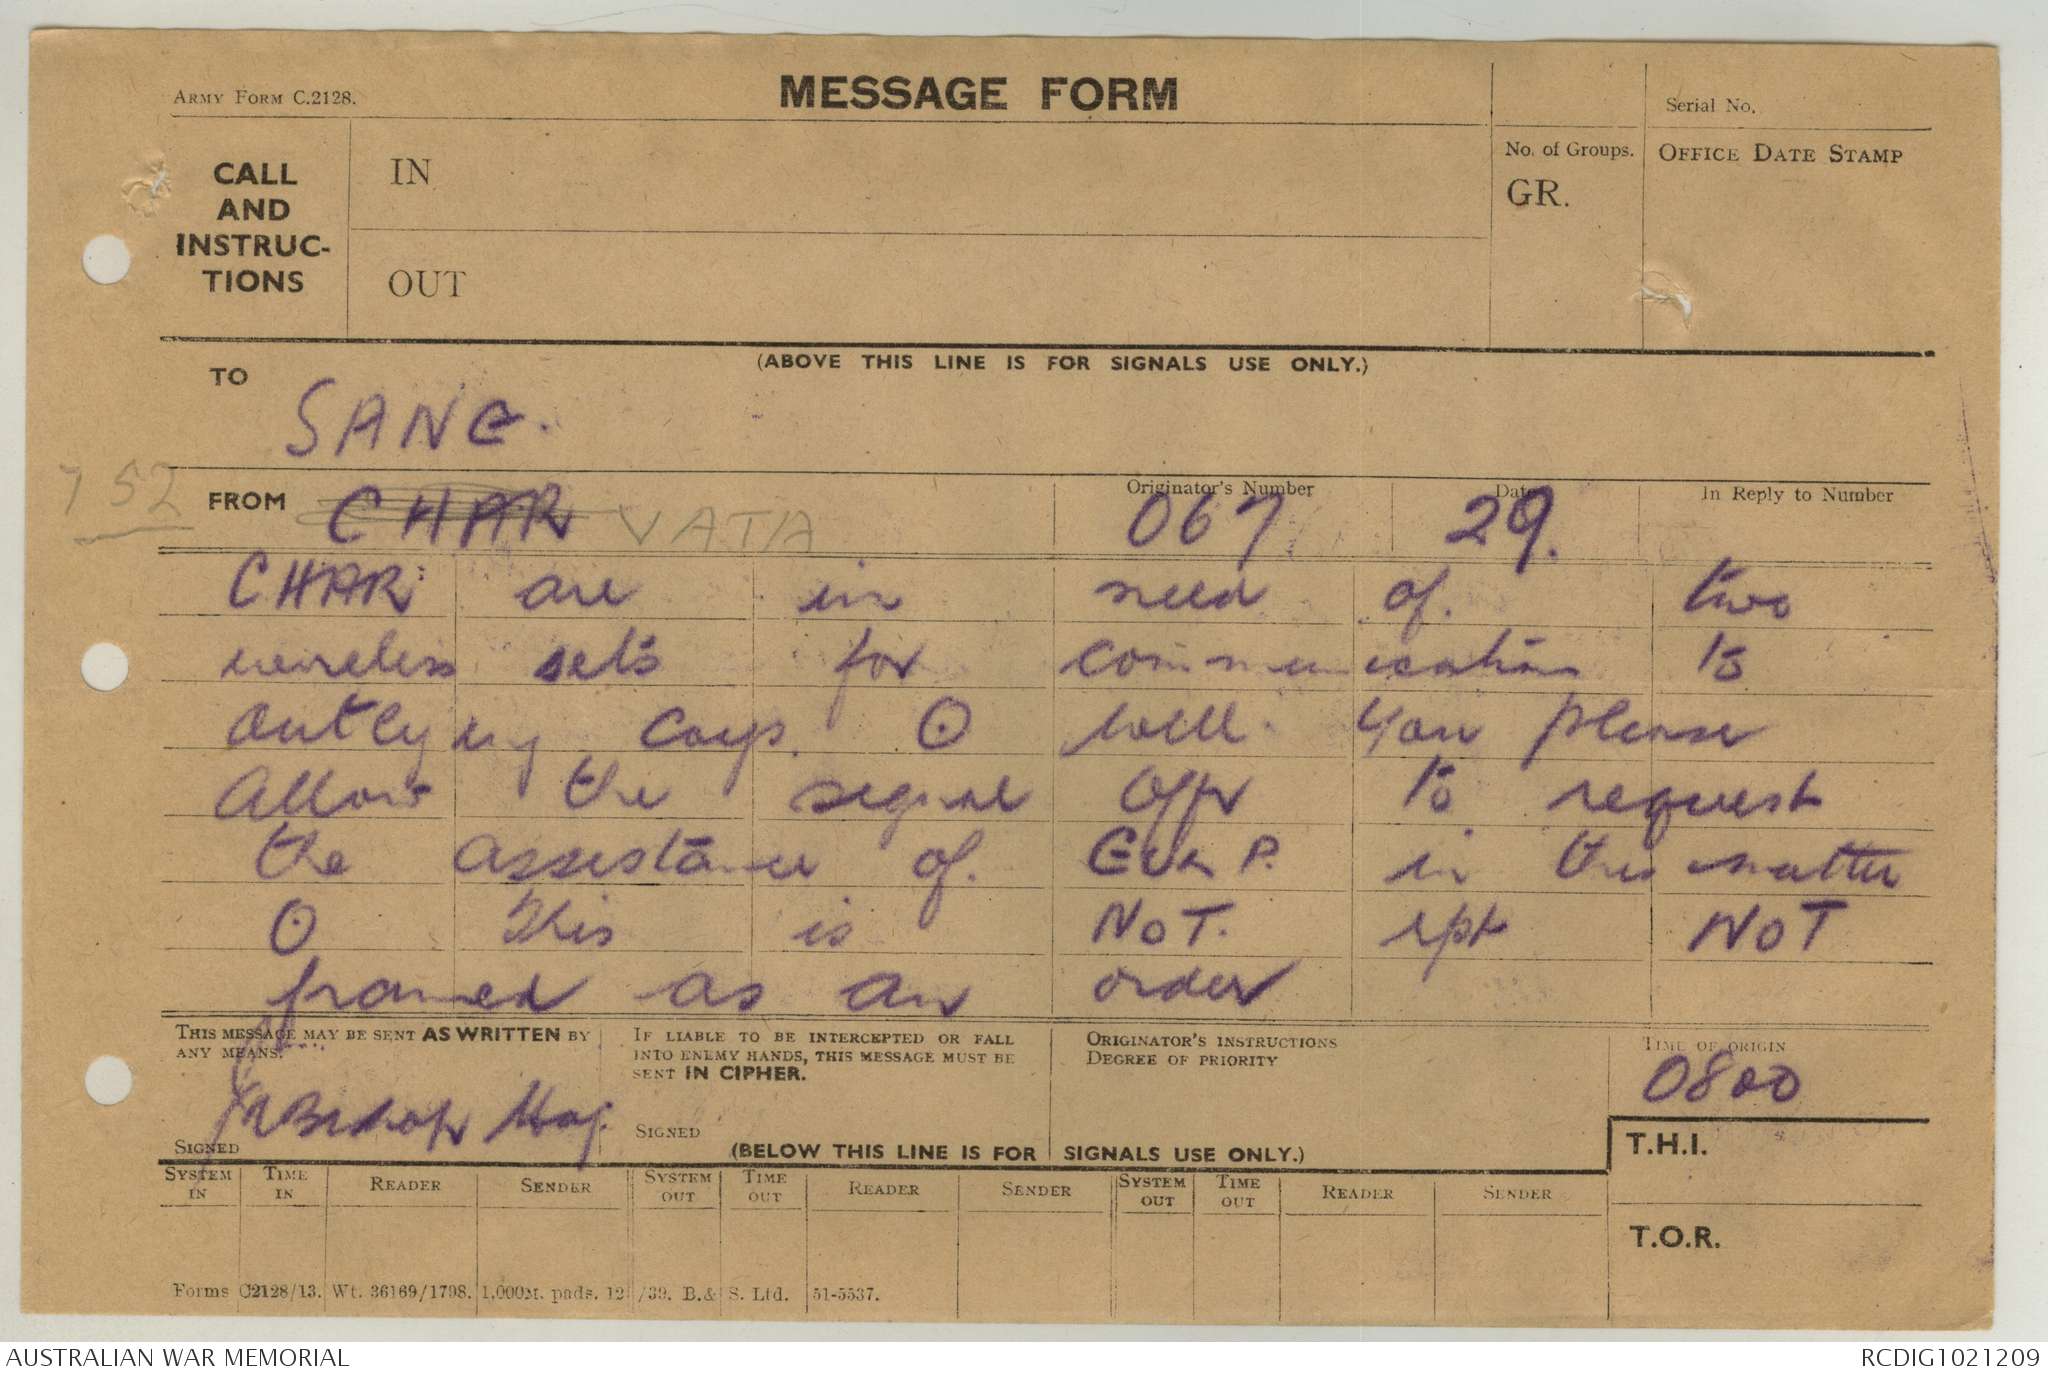 ARMY FORM C.2128.
MESSAGE FORM
Serial No.
CALL
AND
INSTRUC-
TIONS
IN
OUT
No. of Groups.
GR.
OFFICE DATE STAMP
(ABOVE THIS LINE IS FOR SIGNALS USE ONLY.)
TO
SANE.
752
FROM
CHAR VATA
Originator's Number
067
Date
29.
In Reply to Number
CHAR are in need of two
wireless sets for communication to
outlying coys. O will you please
allow the signal offr to request
the assistance of in this matter
O This is NOT. rpt NOT
framed as an order
THIS MESSAGE MAY BE SENT AS WRITTEN BY
ANY MEANS.
SIGNED
Bishop Maj.
IF LIABLE TO BE INTERCEPTED OR FALL
INTO ENEMY HANDS, THIS MESSAGE MUST BE
SENT IN CIPHER.
SIGNED
ORIGINATOR'S INSTRUCTIONS
DEGREE OF PRIORITY
TIME OF ORIGIN
0800
T.H.I.
(BELOW THIS LINE IS FOR SIGNALS USE ONLY.)
SYSTEM IN TIME IN READER SENDER SYSTEM OUT TIME OUT READER SENDER SYSTEM OUT TIME OUT READER SENDER
T.O.R.
Forms C2128/13. Wt. 36169/1798. 1,000M. pads. 12/39. B.& S. Ltd. 51-5537.
AUSTRALIAN WAR MEMORIAL
RCDIG1021209